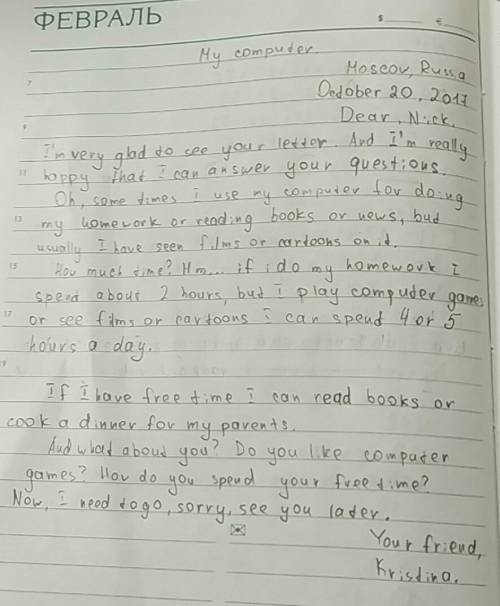 ФЕВРАЛЬ
$ €
My computer.
7
Moscov, Russia
October 20, 2017
9
Dear, Nick.
I'm very glad to see your letter. And I'm really
11 happy that i can answer your questions.
Oh, some times i use my computer for doing
13 my homework or reading books or news, but
usually I have seen films or cartoons on it.
15 Hov much time? Hm... if i do my homework I
spend about 2 hours, but i play computer games
17 or see films or cartoons i can spend 4 or 5
hours a day.
19
If I have free time i can read books or
cook a dinner for my parents.
And what about you? Do you like computer
games? Hov do you spend your free time?
Now, I need to go, sorry, see you later.
Your friend,
Kristina.